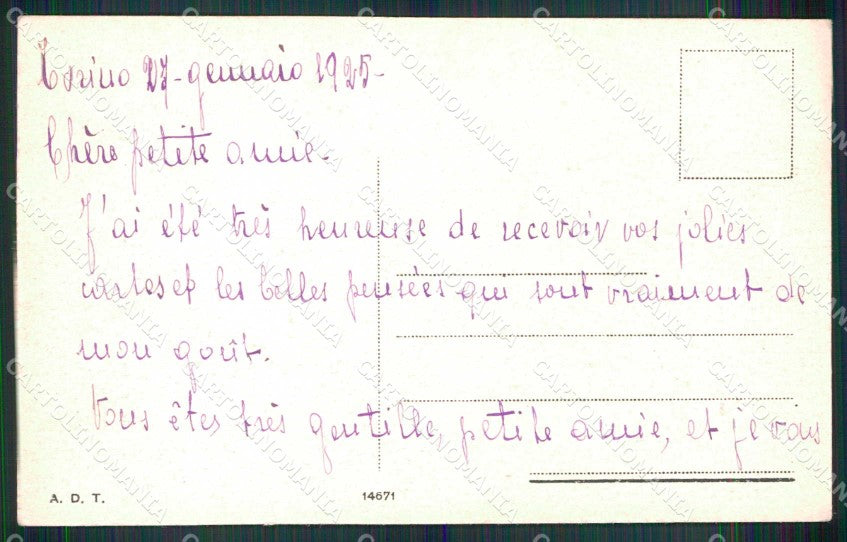 Torino 27-gennaio 1925-
Chère petite amie.
J'ai été très heureuse de recevoir vos jolies
cartes et les belles pensées qui sont vraiment de
mon goût.
Vous êtes très gentille, petite amie, et je vous
A. D. T.
14671
CARTOLINOMANIA